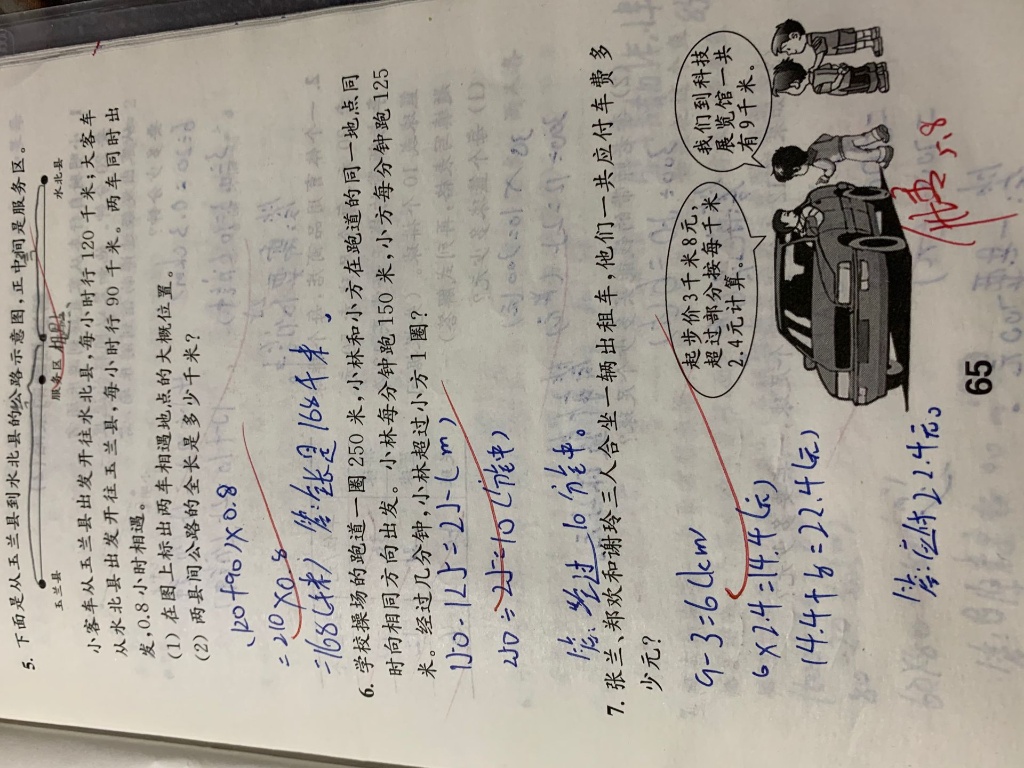 5. 下面是从玉兰县到水北县的公路示意图,正中间是服务区。
玉兰县
服务区
相遇
水北县
小客车从玉兰县出发开往水北县,每小时行120千米;大客车
从水北县出发开往玉兰县,每小时行90千米。两车同时出
发,0.8小时相遇。
(1) 在图上标出两车相遇地点的大概位置。
(2) 两县间公路的全长是多少千米?
(120+90)×0.8
=210×0.8
=168(千米) 答:全长是168千米.
6. 学校操场的跑道一圈250米,小林和小方在跑道的同一地点同
时向相同方向出发。小林每分钟跑150米,小方每分钟跑125
米。经过几分钟,小林超过小方1圈?
150-125=25(m)
250÷25=10(分钟)
答:经过10分钟。
7. 张兰、郑欢和谢玲三人合坐一辆出租车,他们一共应付车费多
少元?
起步价3千米8元,
超过部分按每千米
2.4元计算。
我们到科技
展览馆一共
有9千米。
9-3=6(km)
6×2.4=14.4(元)
14.4+8=22.4(元)
答:应付22.4元。
5.8
65